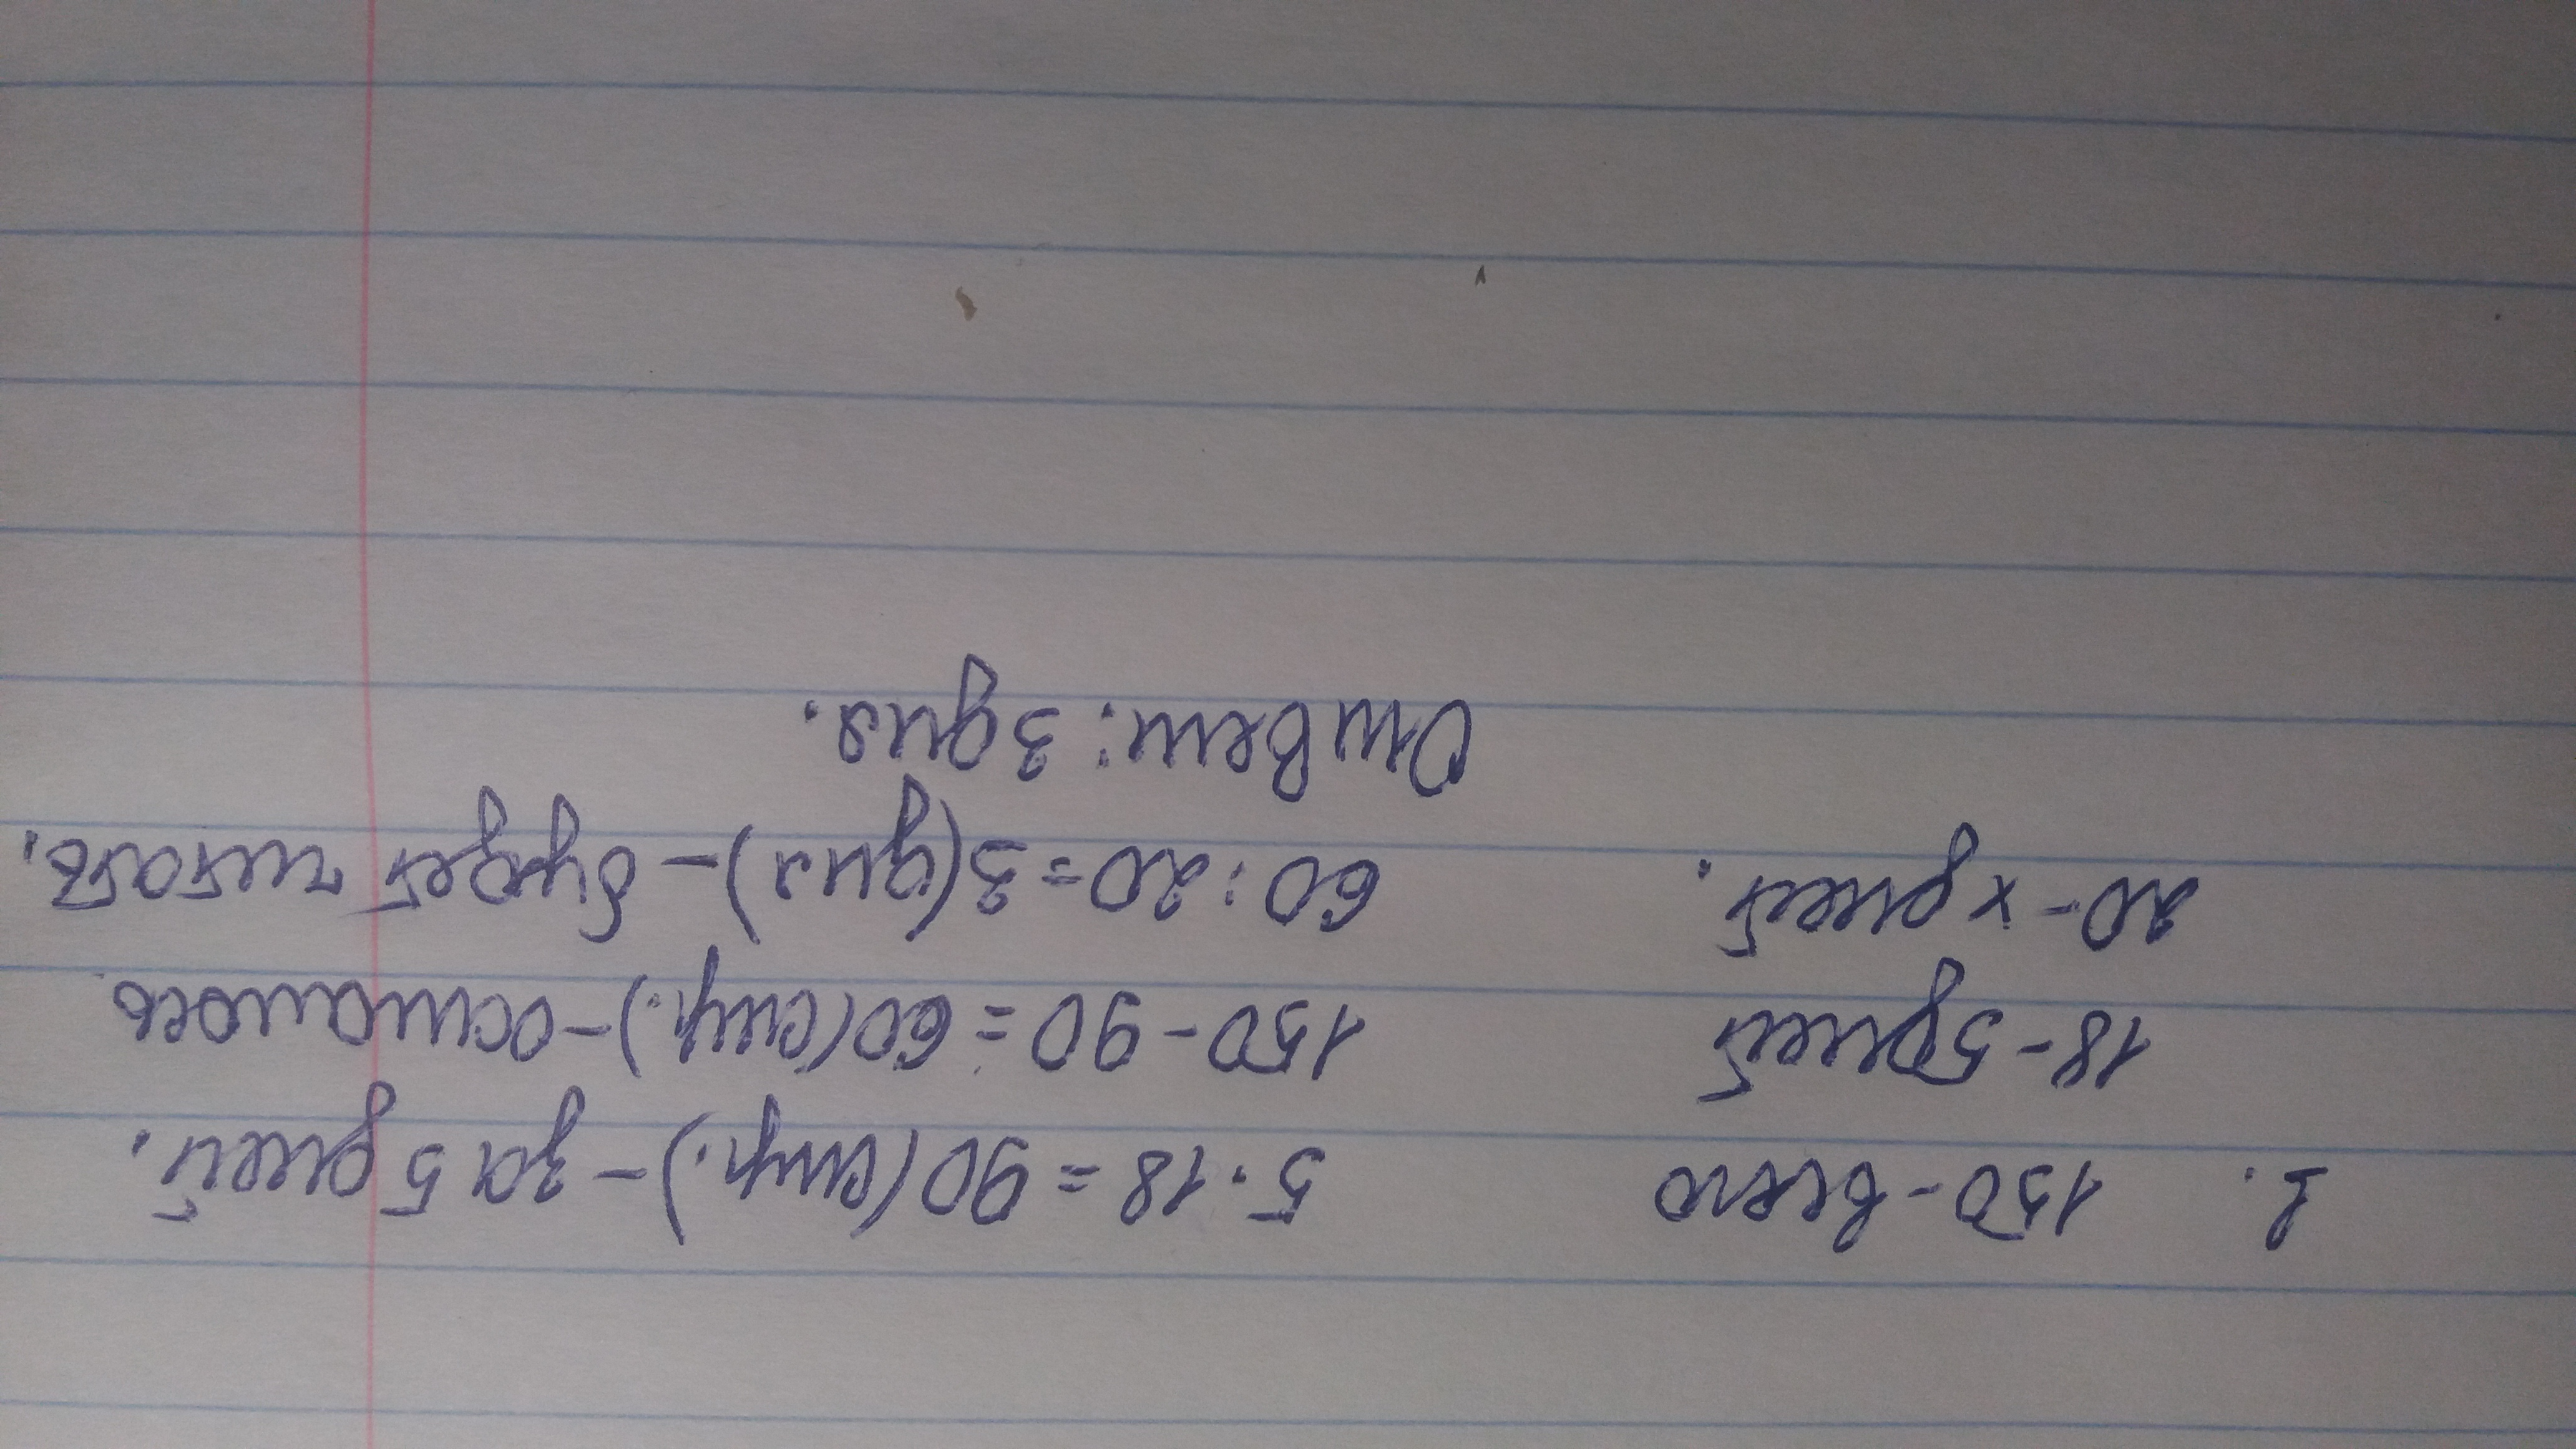 1. 150 - всего 5 · 18 = 90 (стр.) - за 5 дней.
18 - 5 дней 150 - 90 = 60 (стр.) - осталось
20 - х дней. 60 : 20 = 3 (дня) - будет читать.
Ответ: 3 дня.